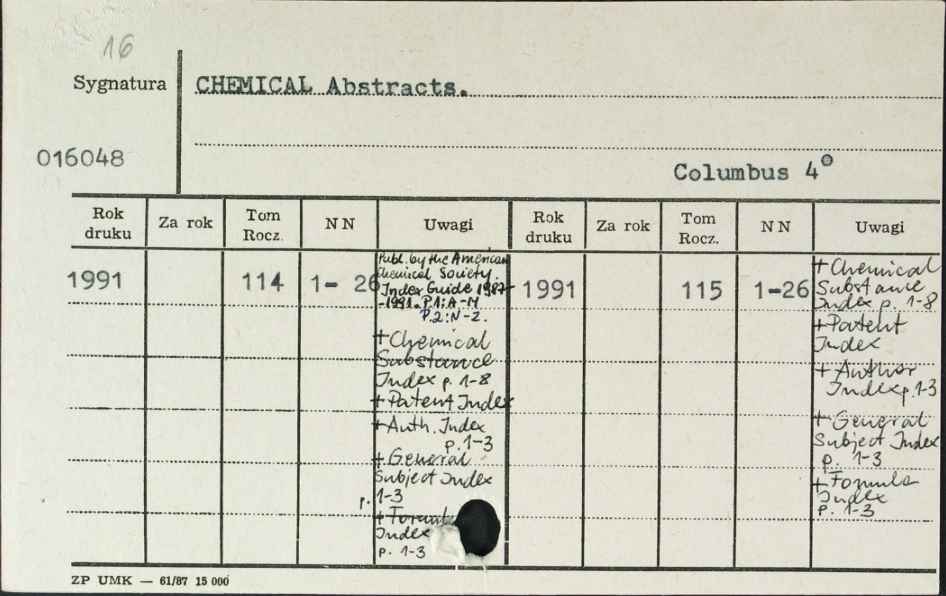 16
Sygnatura
CHEMICAL Abstracts.
016048
Columbus 4°
Rok druku Za rok Tom Rocz. NN Uwagi Rok druku Za rok Tom Rocz. NN Uwagi
1991 114 1- 26
Publ. by the American
Chemical Society.
Index Guide 1987-
-1991. P.1: A-M
P.2: N-Z.
+ Chemical
Substance
Index p. 1-8
+ Patent Index
+ Auth. Index
p. 1-3
+ General
Subject Index
p. 1-3
+ Formula
Index
p. 1-3
1991 115 1-26
+ Chemical
Substance
Index p. 1-8
+ Patent
Index
+ Author
Index p. 1-3
+ General
Subject Index
p. 1-3
+ Formula
Index
p. 1-3
ZP UMK — 61/87 15 000